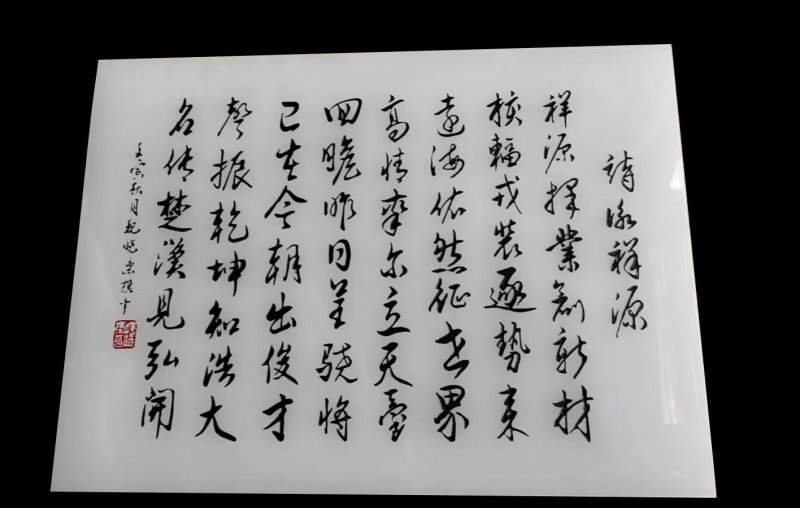 詩咏祥源
祥源擇業創新材
核輻戎裝逐勢來
遠海依然征世界
高情率尔立天臺
回瞻昨日呈骁將
已在今朝出俊才
聲振乾坤知浩大
名傳楚漢見弘開
壬寅秋月魏晓宗撰书